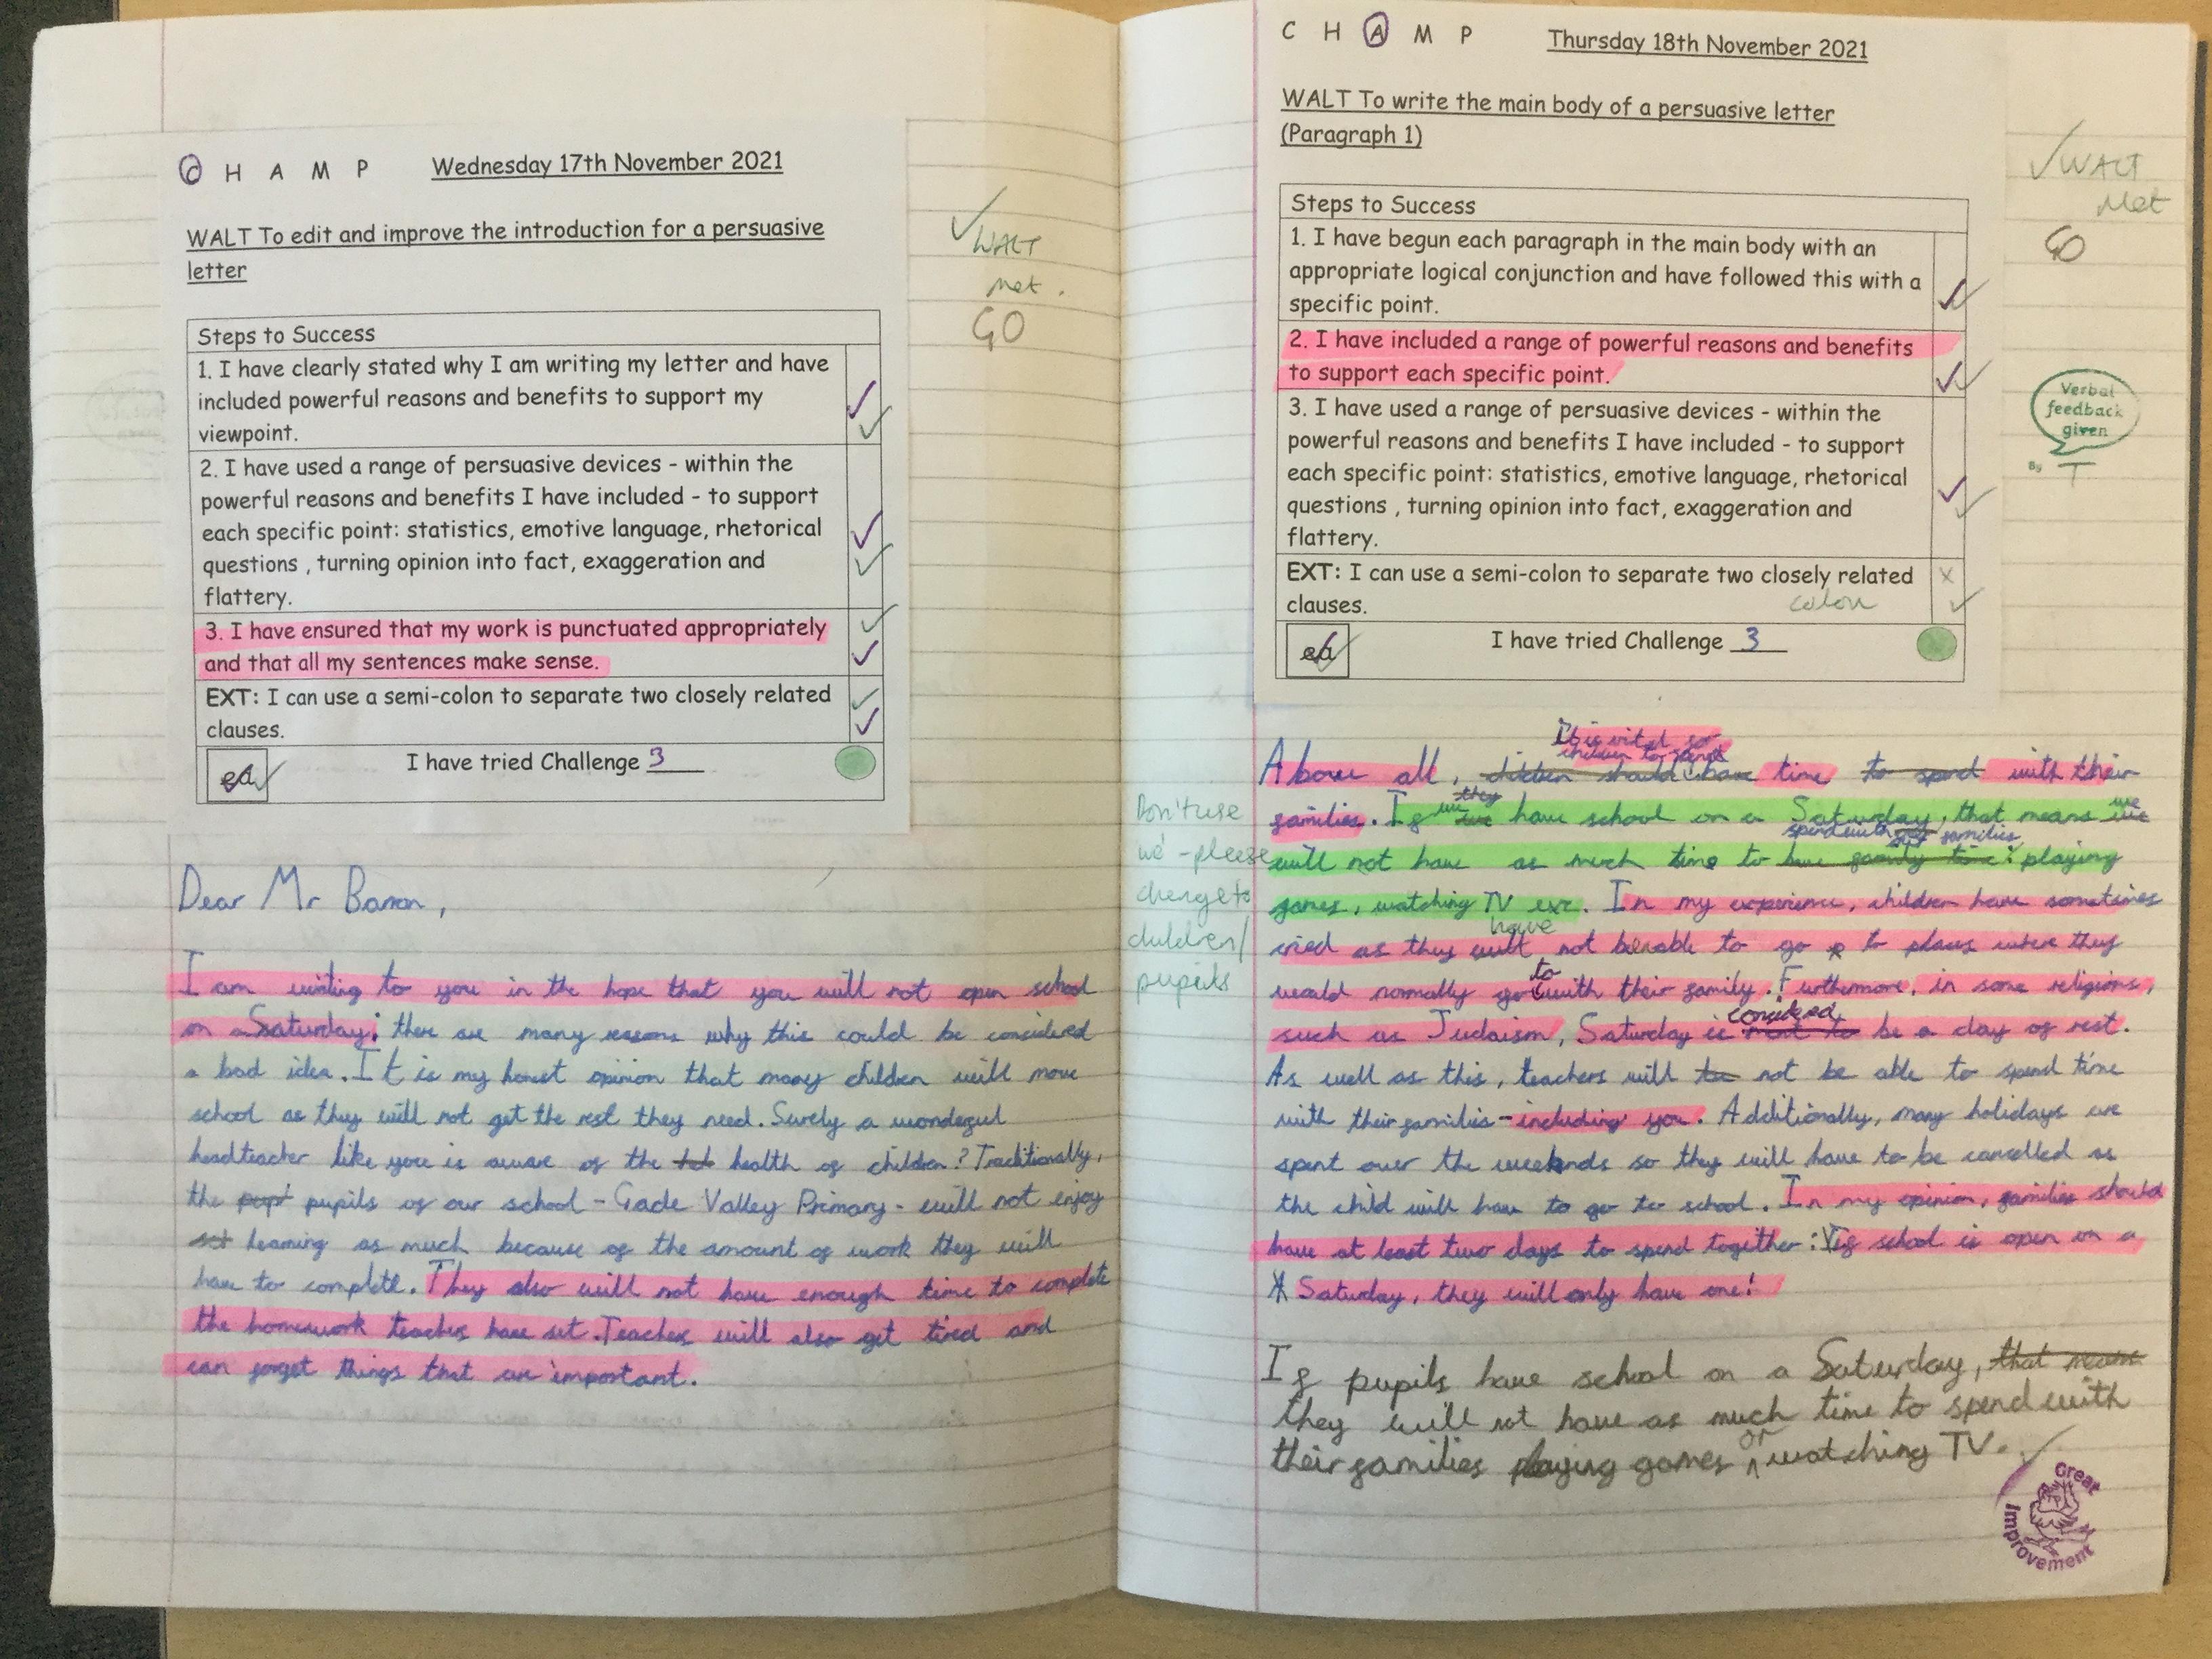 C H A M P Wednesday 17th November 2021
WALT To edit and improve the introduction for a persuasive
letter
Steps to Success
1. I have clearly stated why I am writing my letter and have
included powerful reasons and benefits to support my
viewpoint.
2. I have used a range of persuasive devices - within the
powerful reasons and benefits I have included - to support
each specific point: statistics, emotive language, rhetorical
questions , turning opinion into fact, exaggeration and
flattery.
3. I have ensured that my work is punctuated appropriately
and that all my sentences make sense.
EXT: I can use a semi-colon to separate two closely related
clauses.
I have tried Challenge 3
WALT
met.
GO
Dear Mr Barron,
I am writing to you in the hope that you will not open school
on a Saturday; there are many reasons why this could be considered
a bad idea. It is my honest opinion that many children will move
school as they will not get the rest they need. Surely a wonderful
headteacher like you is aware of the health of children? Traditionally,
the pupils of our school - Gade Valley Primary - will not enjoy
learning as much because of the amount of work they will
have to complete. They also will not have enough time to complete
the homework teachers have set. Teachers will also get tired and
can forget things that are important.
C H A M P Thursday 18th November 2021
WALT To write the main body of a persuasive letter
(Paragraph 1)
Steps to Success
1. I have begun each paragraph in the main body with an
appropriate logical conjunction and have followed this with a
specific point.
2. I have included a range of powerful reasons and benefits
to support each specific point.
3. I have used a range of persuasive devices - within the
powerful reasons and benefits I have included - to support
each specific point: statistics, emotive language, rhetorical
questions , turning opinion into fact, exaggeration and
flattery.
EXT: I can use a semi-colon to separate two closely related
clauses. colon
I have tried Challenge 3
WALT
Met
GO
Verbal
feedback
given
By T
Don't use
we - please
change to
children/
pupils
It is vital for
children to spend
Above all, children should have time to spend with their
families. If we they have school on a Saturday, that means we
spend with families
will not have as much time to have family time: playing
games, watching TV exc. In my experience, children have sometimes
have
cried as they will not been able to go to places where they
to
would normally go with their family. Furthermore, in some religions,
considered
such as Judaism, Saturday is meant to be a day of rest.
As well as this, teachers will not be able to spend time
with their families - including you. Additionally, many holidays are
spent over the weekends so they will have to be cancelled as
the child will have to go to school. In my opinion, families should
have at least two days to spend together: if school is open on a
Saturday, they will only have one!
If pupils have school on a Saturday, that means
they will not have as much time to spend with
or
their families playing games watching TV.
Great
Improvement